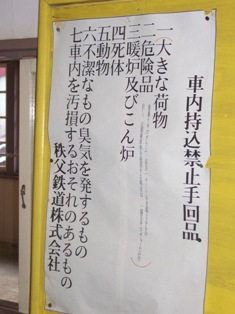 車内持込禁止手回品
一大きな荷物
二危険品
三暖炉及びこん炉
四死体
五動物
六不潔なもの臭気を発するもの
七車内を汚損するおそれのあるもの
秩父鉄道株式会社